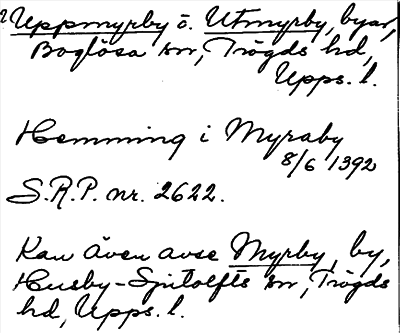 Uppmyrby o. Utmyrby, byar,
Boglösa sn, Trögds hd,
Upps. l.
Hemming i Myraby
8/6 1392
S.R.P. nr. 2622.
Kan även avse Myrby, by,
Husby-Sjutolfts sn, Trögds
hd, Upps. l.